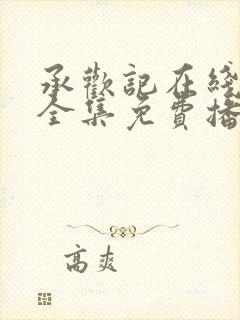 承歡記在綫
全集免費播
高爽